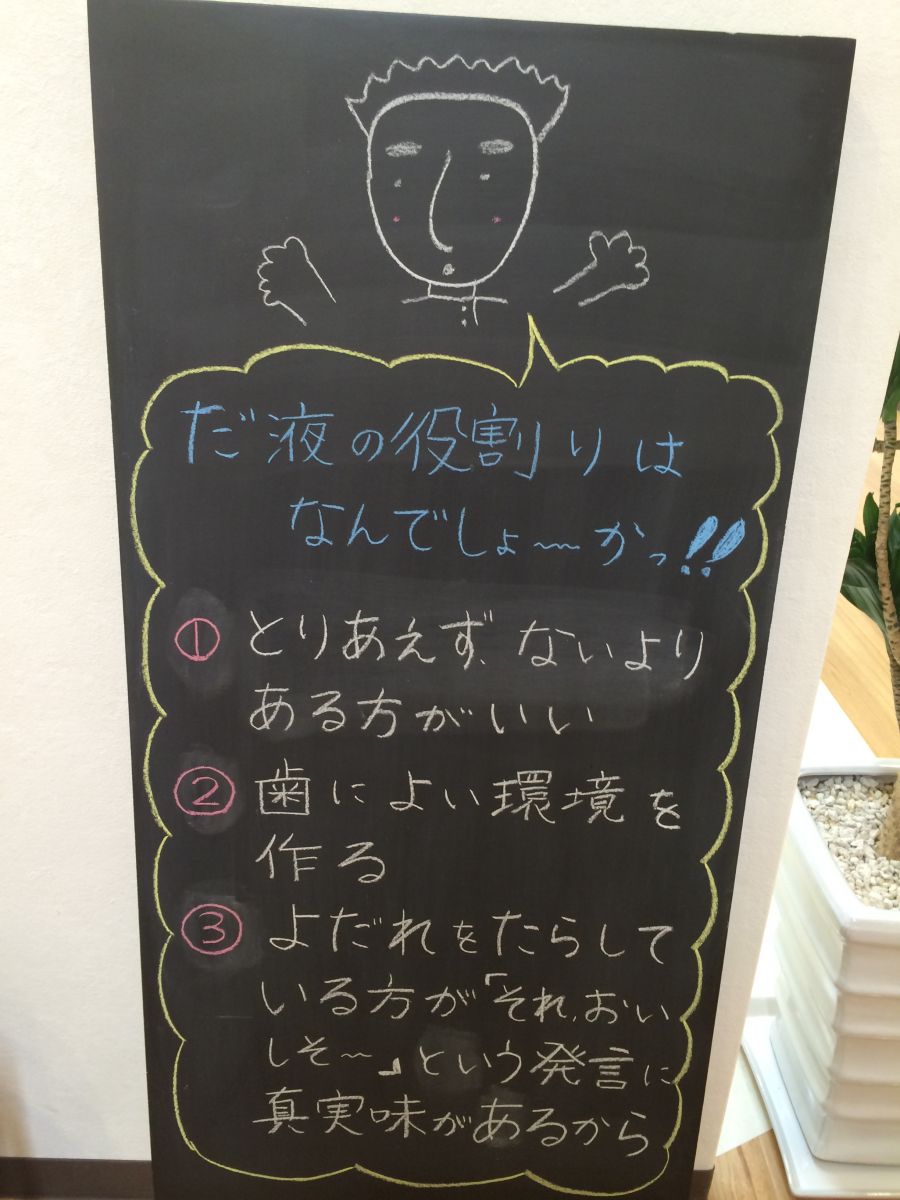 だ液の役割りは
なんでしょ〜かっ!!
① とりあえず、ないより
ある方がいい
② 歯によい環境を
作る
③ よだれをたらして
いる方が「それ、おい
しそ〜」という発言に
真実味があるから